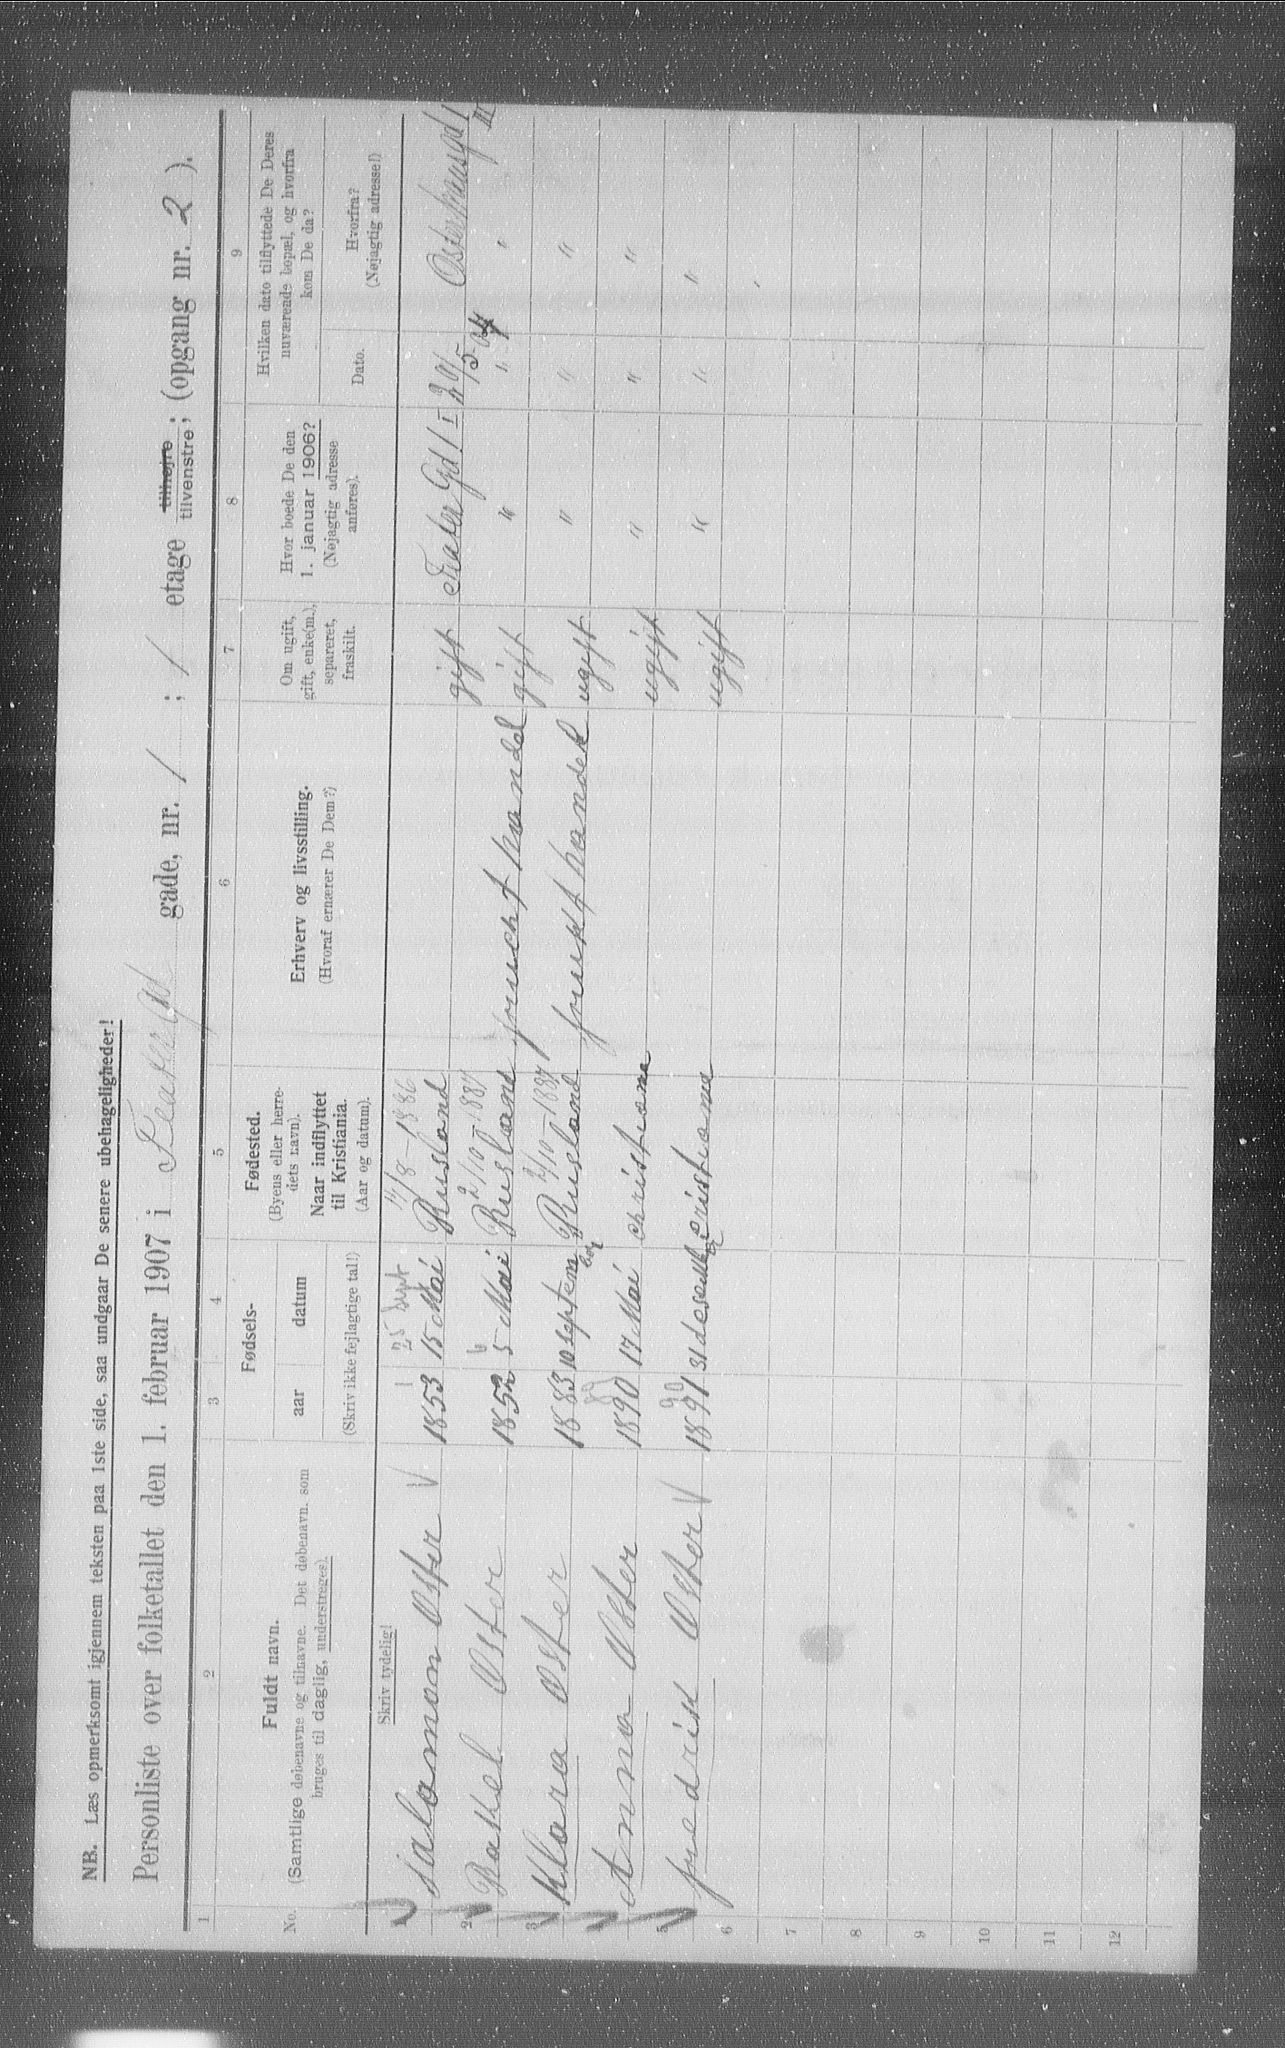 NB. Læs opmerksomt igjennem teksten paa 1ste side, saa undgaar De senere ubehageligheder!
Personliste over folketallet den 1. februar 1907 i Teatergd gade, nr. 1 ; 1 etage tilhøjre tilvenstre ; (opgang nr. 2 ).
1 2 3 4 5 6 7 8 9
No.
Fuldt navn.
(Samtlige døbenavne og tilnavne. Det døbenavn, som
bruges til daglig, understreges).
Skriv tydelig!
Fødsels-
aar datum
(Skriv ikke fejlagtige tal!)
Fødested.
(Byens eller herre-
dets navn).
Naar indflyttet
til Kristiania.
(Aar og datum).
Erhverv og livsstilling.
(Hvoraf ernærer De Dem?)
Om ugift,
gift, enke(m.),
separeret,
fraskilt.
Hvor boede De den
1. januar 1906?
(Nøjagtig adresse
anføres).
Hvilken dato tilflyttede De Deres
nuværende bopæl, og hvorfra
kom De da?
Dato.
Hvorfra?
(Nøjagtig adresse!)
1 25 Sept 14/8-1886
Salomon Oster V 1853 15 Mai Rusland gift Teater Gd 1 I 29/5 04 Osterhausgd 1 III
6 2/10-1887
2 Rakel Oster 1852 5 Mai Rusland frucht handel gift " " "
2/10-1887
3 Klara Oster 1883 10 september Rusland frukt handel ugift " " "
89
4 Anna Oster 1890 17 Mai christiana ugift " " "
90
5 fredrik Oster V 1891 31 desember cristiana ugift " " "
6
7
8
9
10
11
12